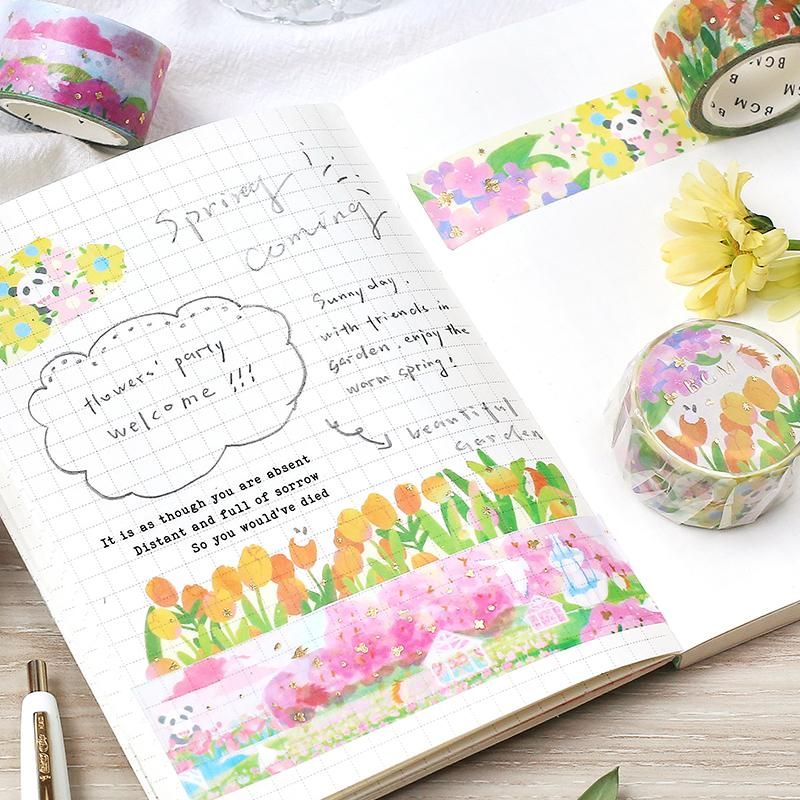 Spring
coming
Sunny day.
with friends in
garden. enjoy the
warm spring!
flowers' party
welcome!!!
beautiful
garden
It is as though you are absent
Distant and full of sorrow
So you would've died
BGM
BGM B